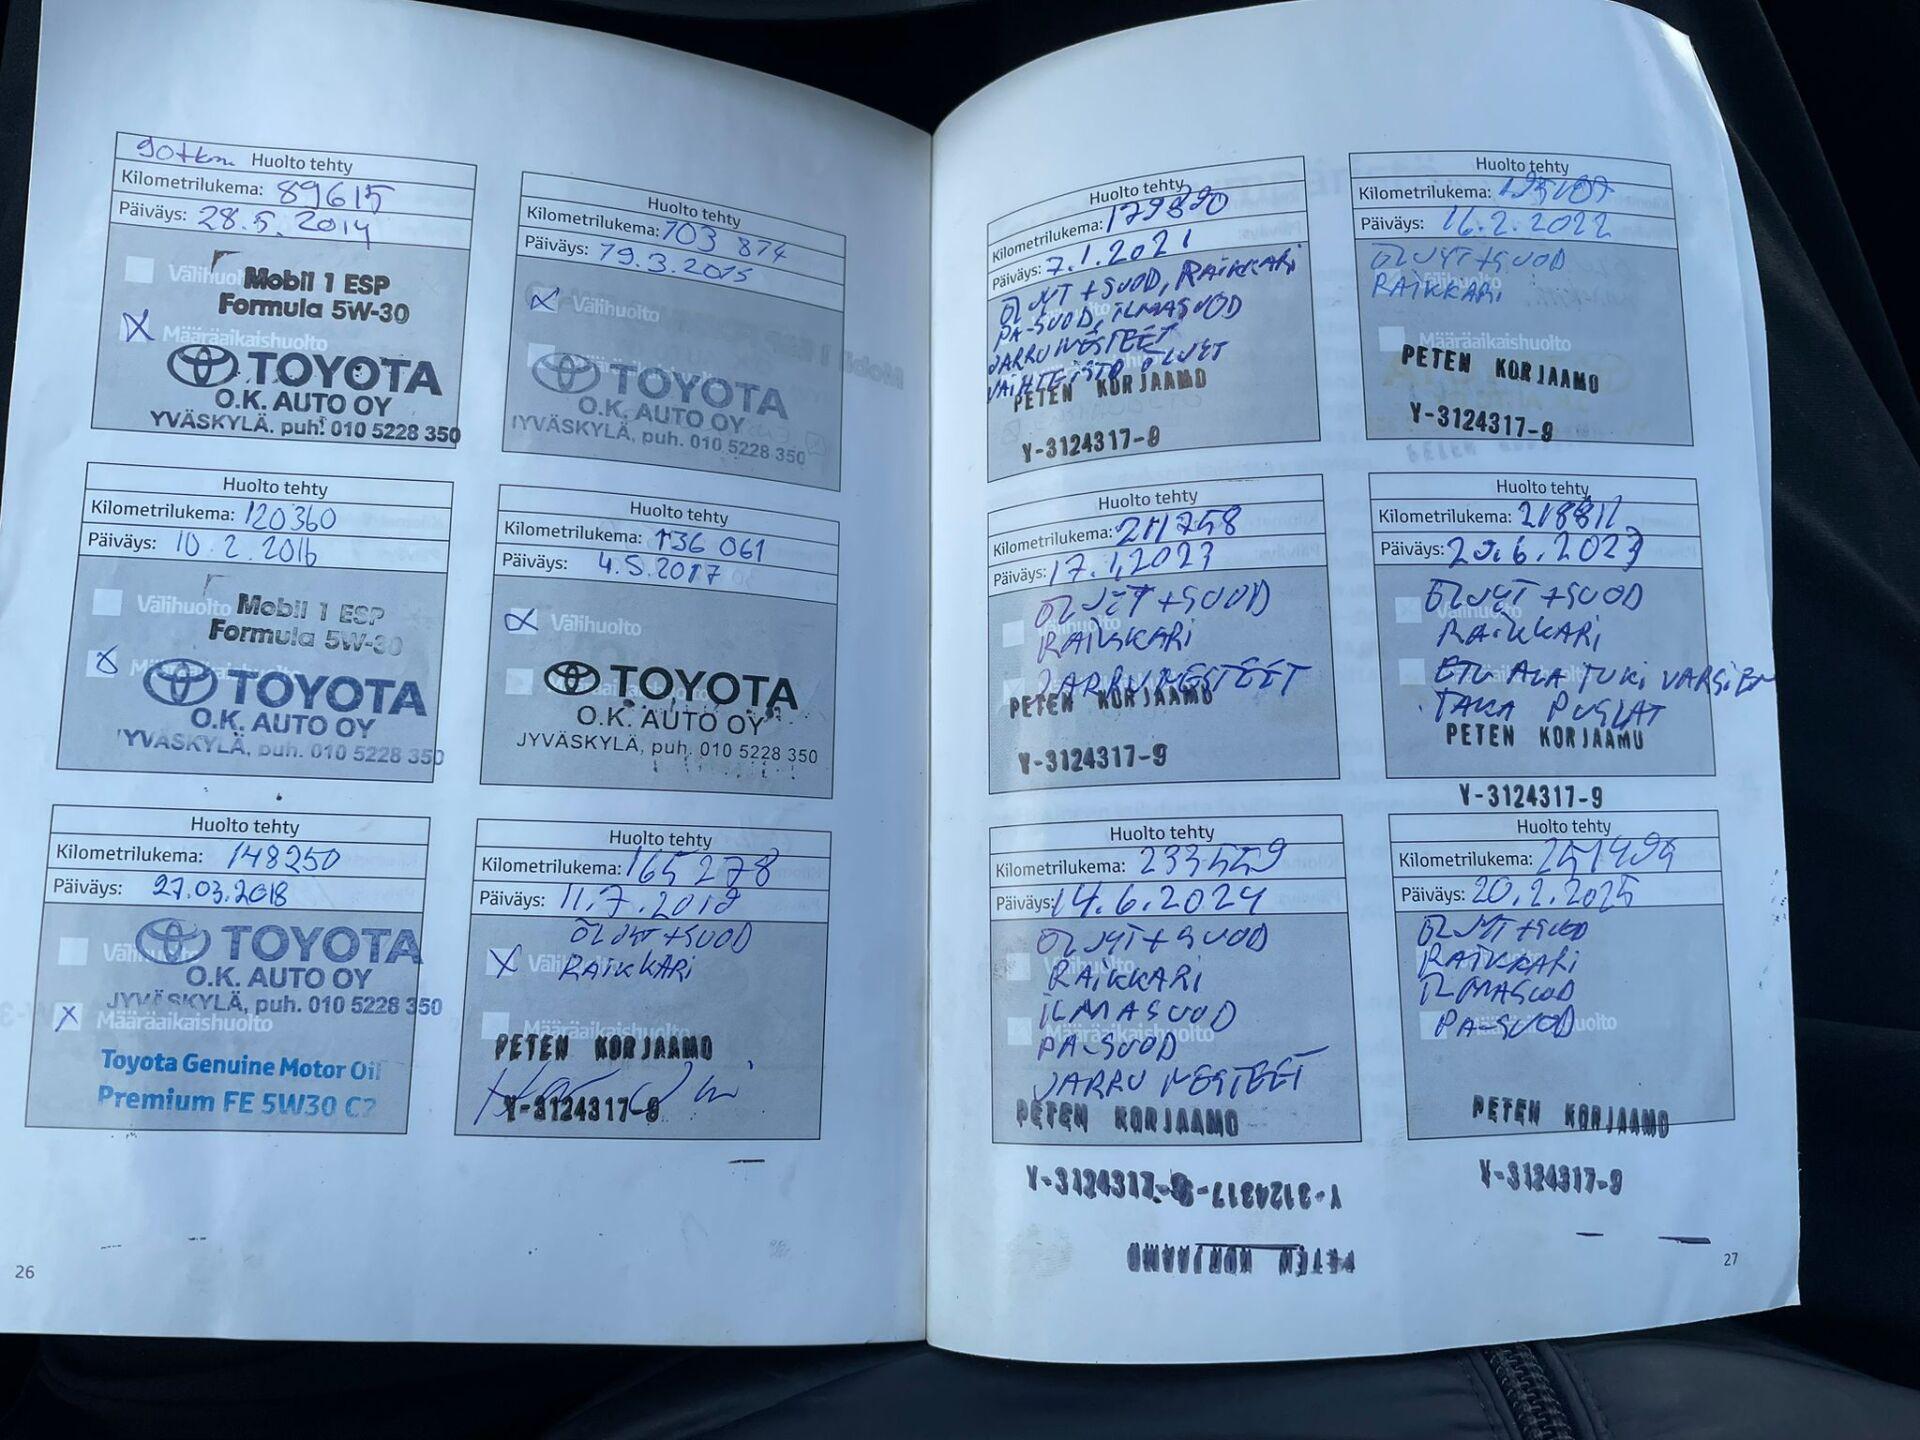 90tkm Huolto tehty
Kilometrilukema: 89615
Päiväys: 28.5.2014
Välihuolto
Mobil 1 ESP
Formula 5W-30
X Määräaikaishuolto
TOYOTA
O.K. AUTO OY
YVÄSKYLÄ. puh: 010 5228 350
Huolto tehty
Kilometrilukema: 103 874
Päiväys: 19.3.2015
X Välihuolto
TOYOTA
O.K. AUTO OY
JYVÄSKYLÄ, puh. 010 5228 350
Huolto tehty
Kilometrilukema: 120360
Päiväys: 10.2.2016
Välihuolto
Mobil 1 ESP
Formula 5W-30
X Määräaikaishuolto
TOYOTA
O.K. AUTO OY
YVÄSKYLÄ, puh. 010 5228 350
Huolto tehty
Kilometrilukema: 136 061
Päiväys: 4.5.2017
X Välihuolto
TOYOTA
O.K. AUTO OY
JYVÄSKYLÄ, puh. 010 5228 350
Huolto tehty
Kilometrilukema: 148250
Päiväys: 27.03.2018
Välihuolto
TOYOTA
O.K. AUTO OY
JYVÄSKYLÄ, puh. 010 5228 350
X Määräaikaishuolto
Toyota Genuine Motor Oil
Premium FE 5W30 C2
Huolto tehty
Kilometrilukema: 165278
Päiväys: 11.7.2019
ÖLJYT+SUOD
X Välihuolto
RAIKKARI
Määräaikaishuolto
PETEN KORJAAMO
Y-3124317-9
26
Huolto tehty
Kilometrilukema: 179890
Päiväys: 7.1.2021
ÖLJYT +SUOD, RAIKKARI
PA-SUOD, ILMASUOD
JARRUNESTEET
VAIHTEISTO ÖLJYT
PETEN KORJAAMO
Y-3124317-9
Huolto tehty
Kilometrilukema:
Päiväys: 16.2.2022
ÖLJYT+SUOD
RAIKKARI
Määräaikaishuolto
PETEN KORJAAMO
Y-3124317-9
Huolto tehty
Kilometrilukema: 211758
Päiväys: 17.1.2023
ÖLJYT +SUOD
RAIKKARI
JARRUNESTEET
PETEN KORJAAMO
Y-3124317-9
Huolto tehty
Kilometrilukema:
Päiväys: 20.6.2023
ÖLJYT +SUOD
RAIKKARI
ETU ALA TUKIVARSIEN
TAKA PUSLAT
PETEN KORJAAMO
Y-3124317-9
Huolto tehty
Kilometrilukema: 233559
Päiväys: 14.6.2024
ÖLJYT+SUOD
RAIKKARI
ILMASUOD
Määräaikaishuolto
PA-SUOD
JARRU NESTEET
PETEN KORJAAMO
Y-3124317-9
Y-3124317-9
PETEN KORJAAMO
Huolto tehty
Kilometrilukema:
Päiväys: 20.2.2025
ÖLJYT +SUOD
RAIKKARI
ILMASUOD
PA-SUOD
PETEN KORJAAMO
Y-3124317-9
27